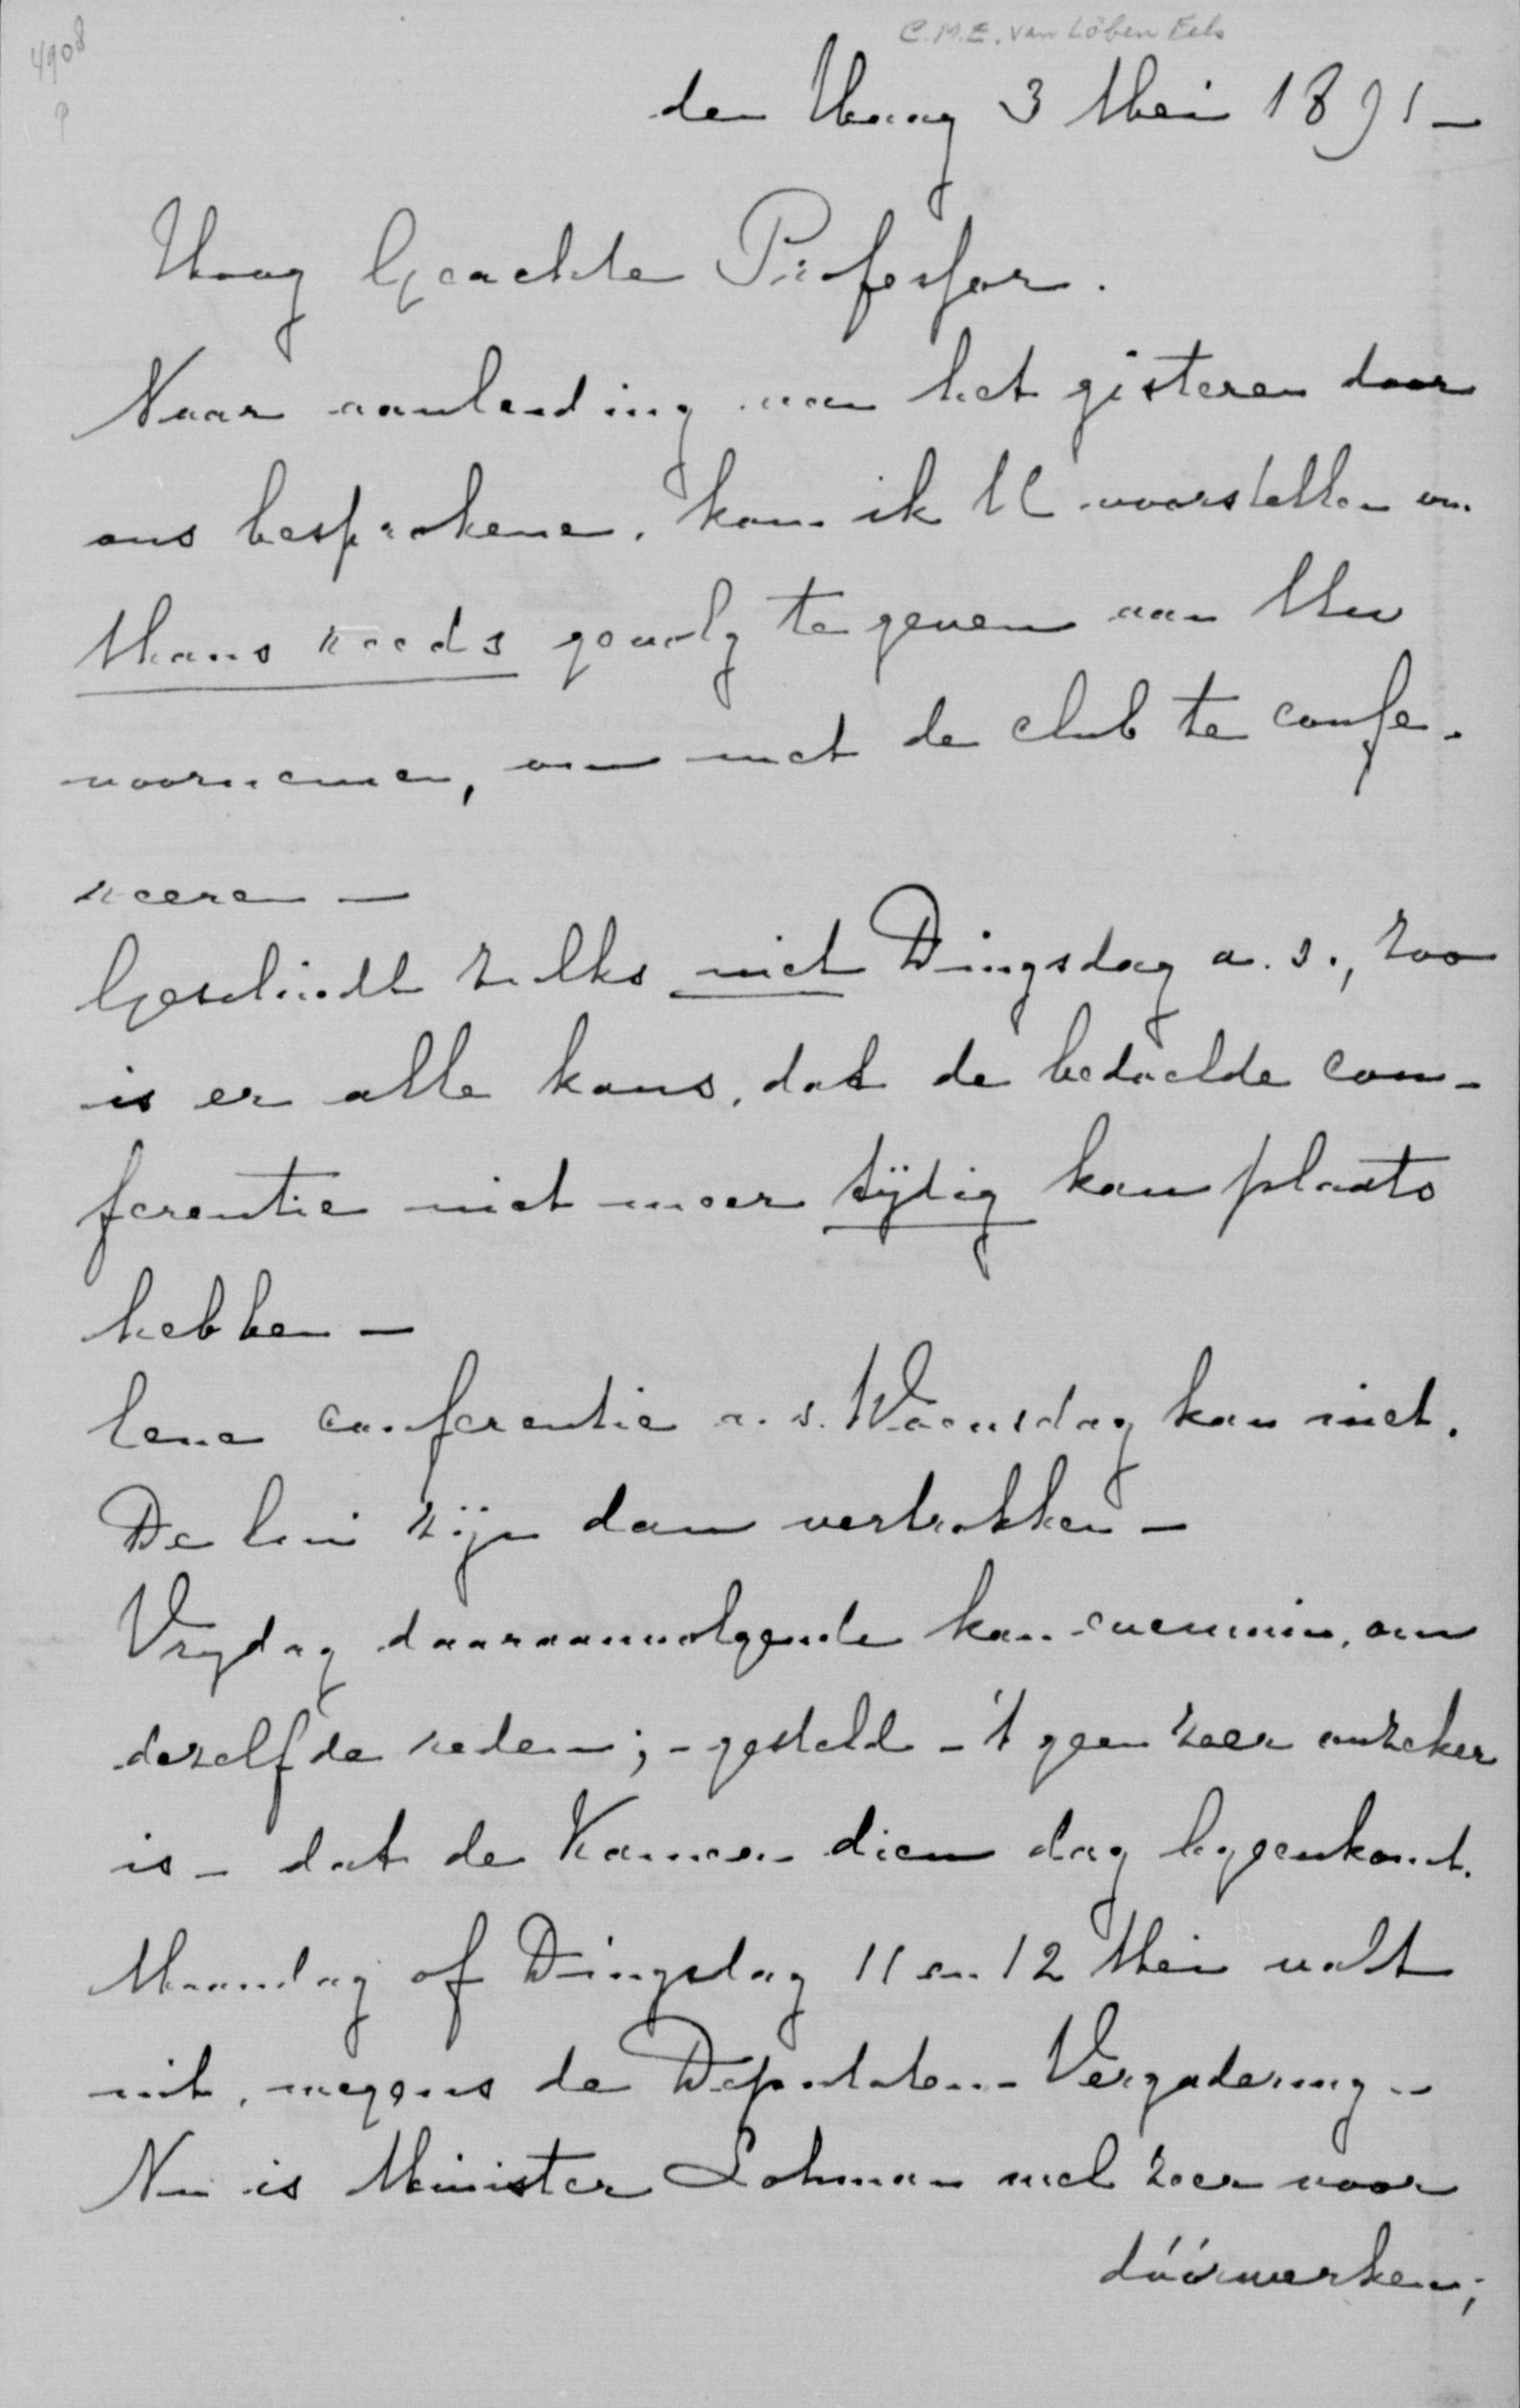 4908
C.M.E. van Löben Sels
den Haag 3 Mei 1891 —
Hoog Geachte Professor.
Naar aanleiding van het gisteren door
ons besprokene, kom ik U voorstellen om
thans reeds gevolg te geven aan Uw
voornemen, om met de club te confe-
reeren —
Geschiedt zulks niet Dingsdag a.s., zoo
is er alle kans, dat de bedoelde con-
ferentie niet meer tijdig kan plaats
hebben —
Eene conferentie a.s. Woensdag kan niet.
De lui zijn dan vertrokken —
Vrydag daaraanvolgende kan evenmin, om
dezelfde reden; - gesteld - 't geen zeer onzeker
is - dat de Kamer dien dag bygeenkomt.
Maandag of Dingsdag 11 en 12 Mei valt
uit, wegens de Deputaten-Vergadering -
Nu is Minister Lohman wel zeer voor
dóórwerken;